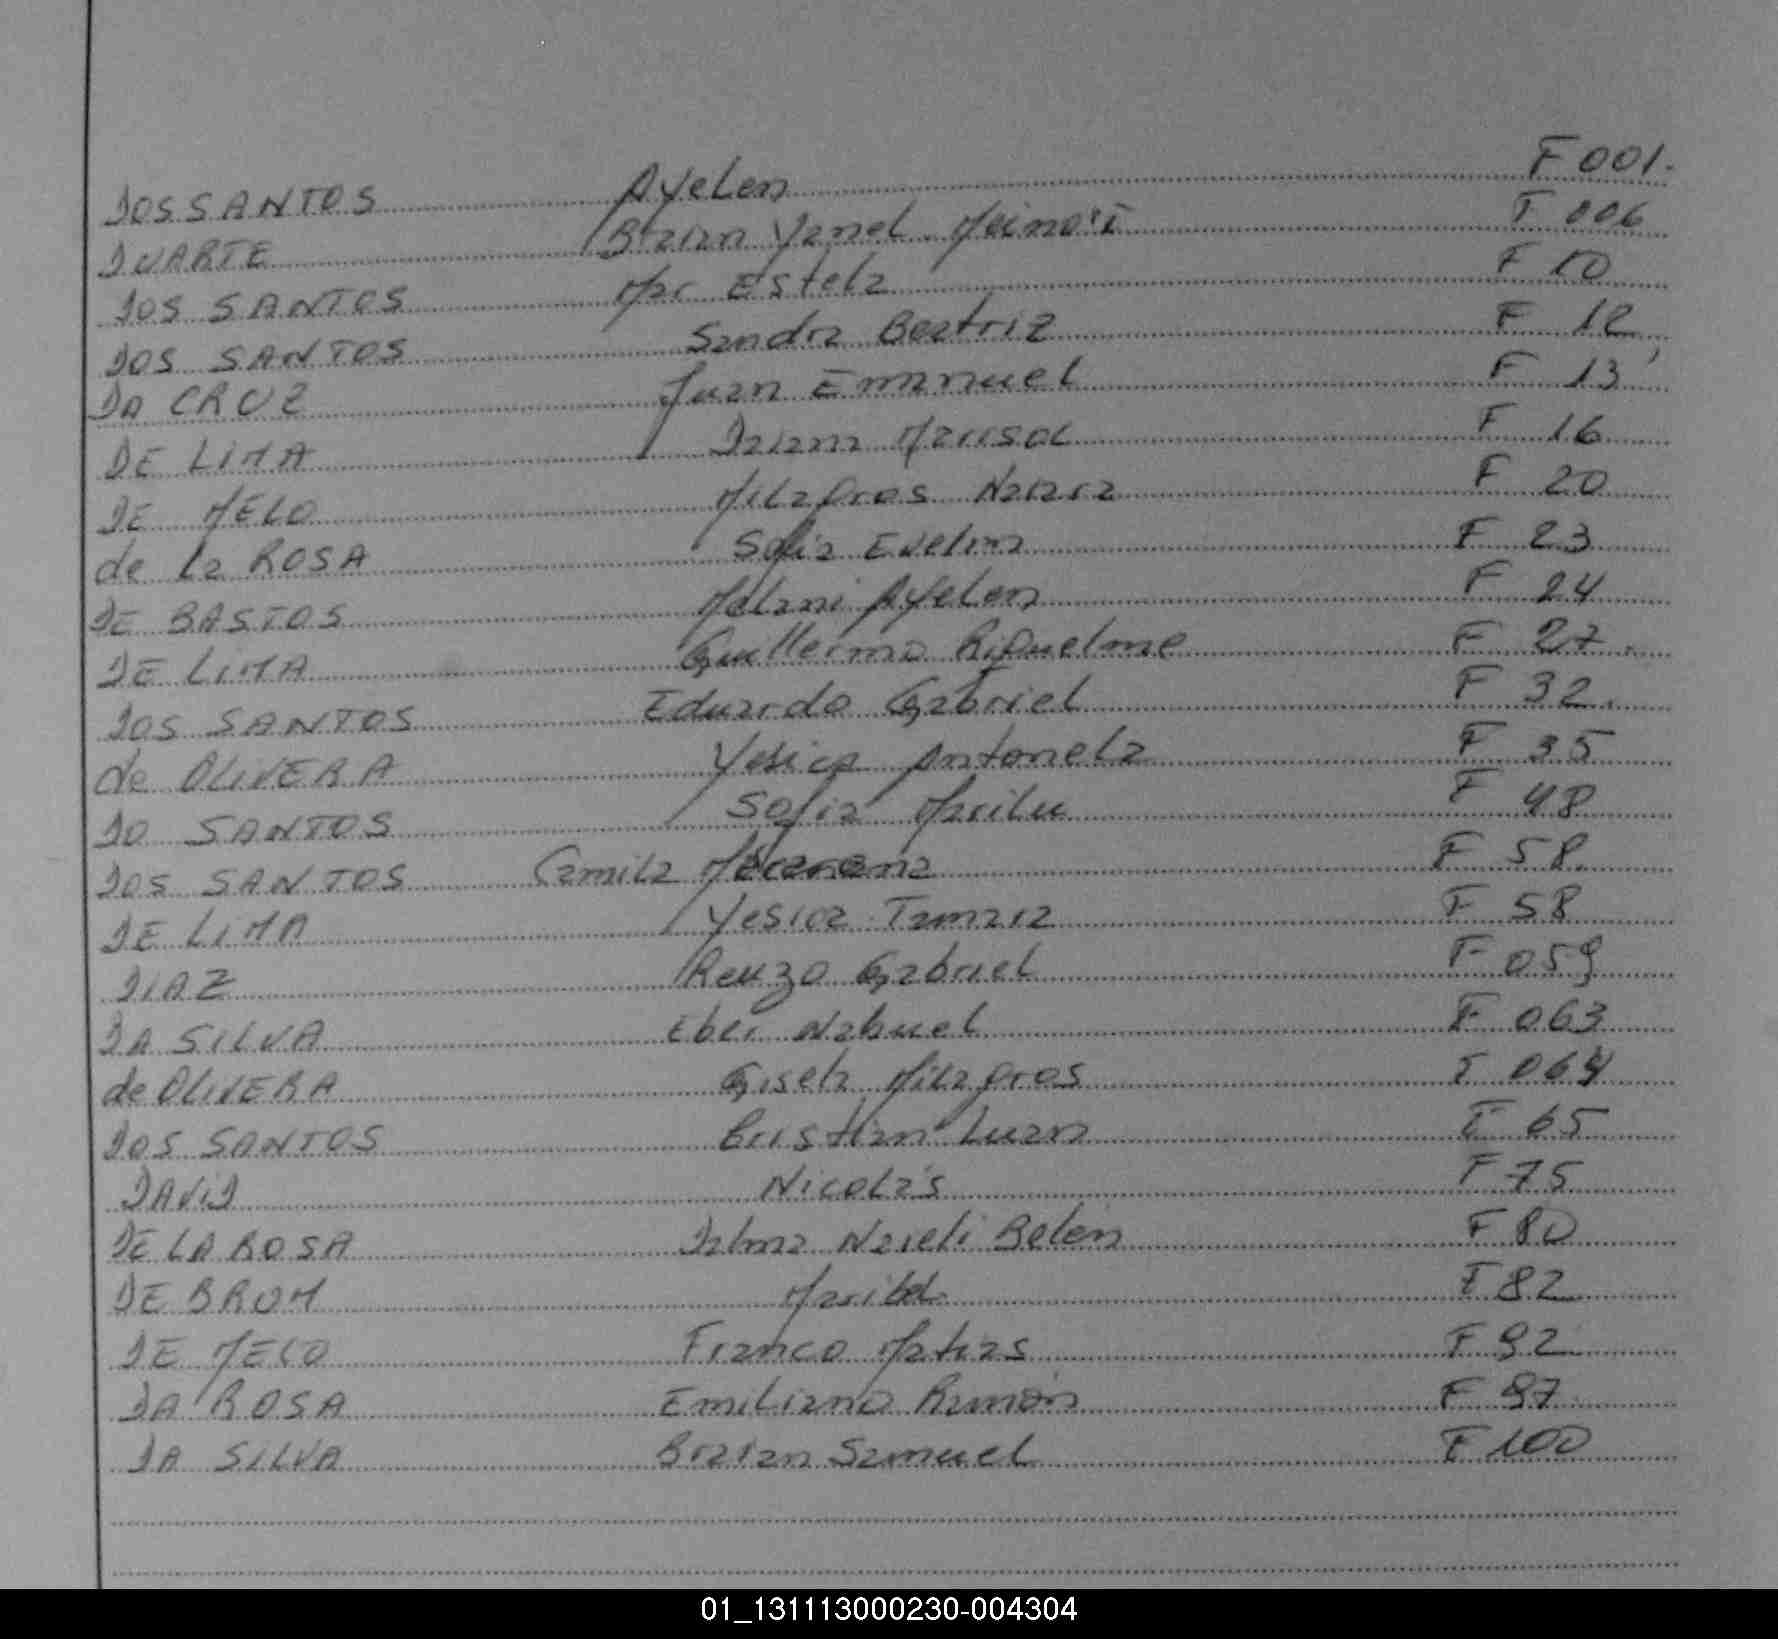 DOS SANTOS Ayelen F 001.
DUARTE Braian Yanel F 006
DOS SANTOS Mar Estela F 10
DOS SANTOS Sandra Beatriz F 12
DA CRUZ Juan Emanuel F 13
DE LIMA Daiana Marisol F 16
DE MELO Milagros Naiara F 20
de la ROSA Sofia Evelin F 23
DE BASTOS Melani Ayelen F 24
DE LIMA Guillermo Riquelme F 27.
DOS SANTOS Eduardo Gabriel F 32.
de OLIVERA Yesica Antonela F 35
DO SANTOS Sofia Marilu F 48
DOS SANTOS Camila F 58.
DE LIMA Yesica Tamara F 58
DIAZ Renzo Gabriel F 059
DA SILVA Eber Nahuel F 063
de OLIVERA Gisela Milagros F 064
DOS SANTOS Cristian Luan F 65
DAVID Nicolás F 75
DE LA ROSA Dalma Naieli Belén F 80
DE BROM Maribel F 82
DE MELO Franco Matias F 92
DA ROSA Emiliano Ramón F 97
DA SILVA Braian Samuel F 100
01_131113000230-004304